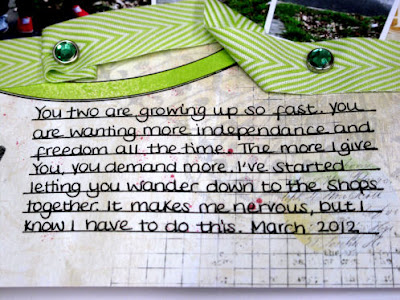 You two are growing up so fast. You
are wanting more independance and
freedom all the time. The more I give
you, you demand more. I've started
letting you wander down to the shops
together. It makes me nervous, but I
know I have to do this. March 2012.